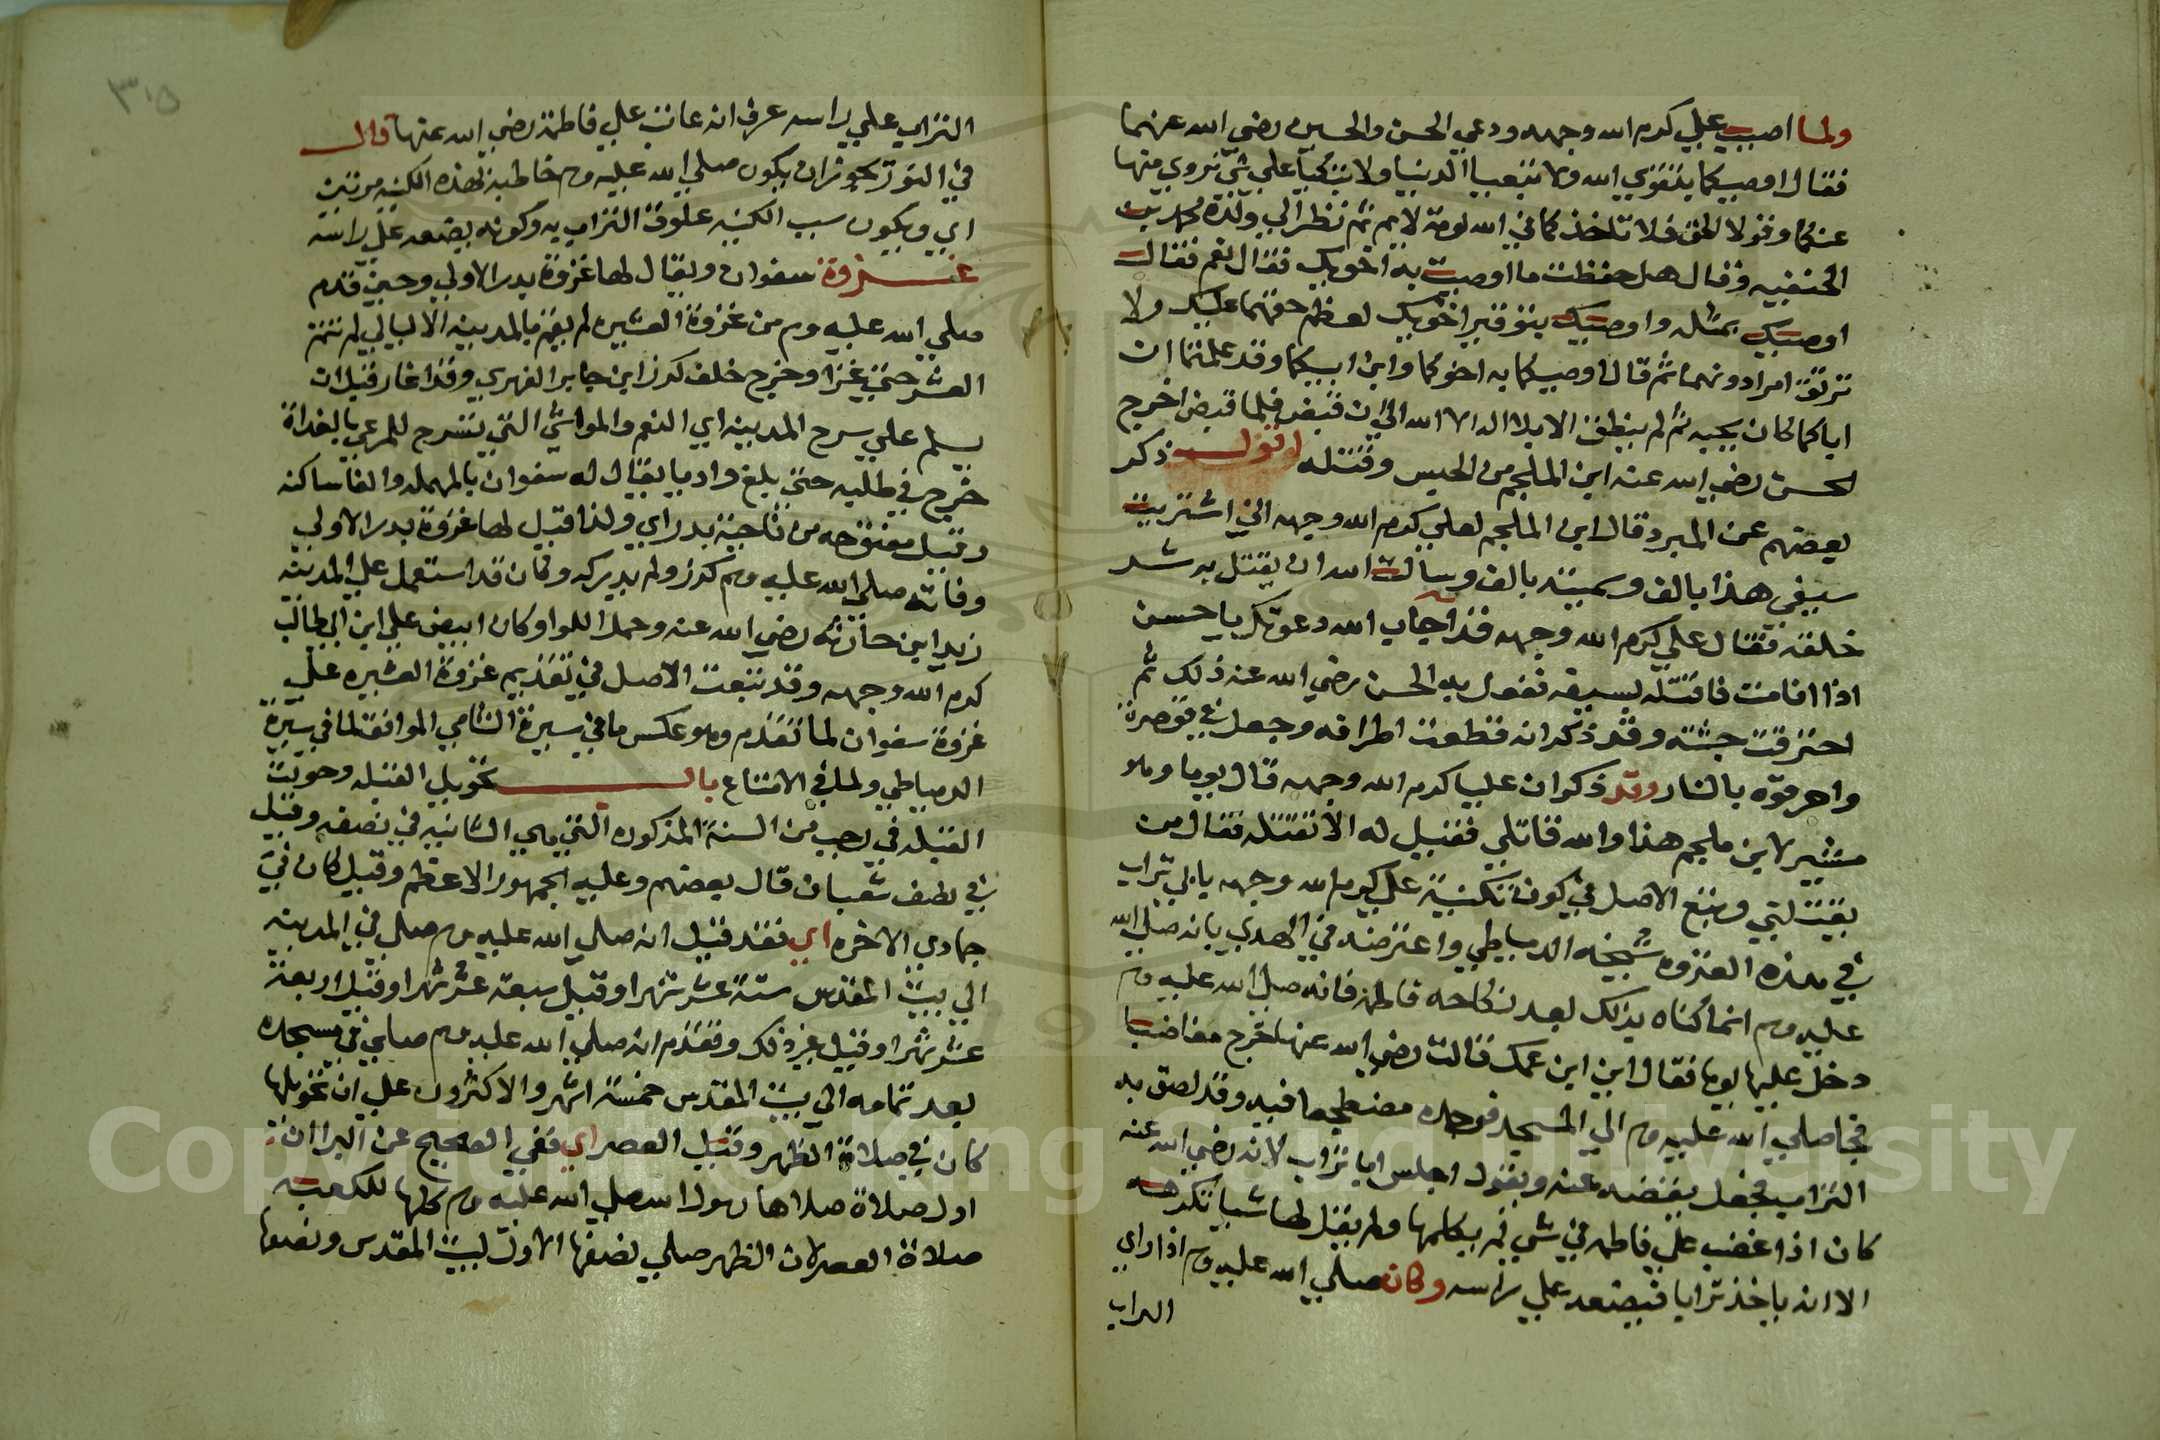 ولما اصيب علي كرم الله وجهه ودعي الحسن والحسين رضي الله عنهما
فقال اوصيكما بتقوي الله ولا تبغيا الدنيا ولا تبكيا علي شي زوي منها
عنكما وقولا الحق فلا تاخذكما في الله لومة لايم ثم نظر الي ولده محمد بن
الحنفيه وقال هل حفظت ما اوصيت به اخويك فقال نعم فقال
اوصيك بمثله واوصيك بتوقير اخويك لعظم حقهما عليك ولا
توثق امرا دونهما ثم قال اوصيكما به اخوكما وابن ابيكما وقد علمتما ان
اباكما كان يحبه ثم لم ينطق الا بلا اله الا الله الي ان قبض فلما قبض اخرج
الحسن رضي الله عنه ابن الملجم من الحبس وقتله اقول ذكر
بعضهم عن المبرد قال ابن الملجم لعلي كرم الله وجهه اني اشتريت
سيفي هذا بالف وسميته بالف وسالت الله ان يقتل به شر
خلقه فقال علي كرم الله وجهه قد اجاب الله دعوتك يا حسن
اذا انا مت فاقتله بسيفه ففعل به الحسن رضي الله عنه ذلك ثم
احترقت جثته وقد ذكر انه قطعت اطرافه وجعل في قوصرة
واحرقوه بالنار وقد ذكر ان عليا كرم الله وجهه قال يوما وهو
مشير لابن ملجم هذا والله قاتلي فقيل له الا تقتله فقال من
يقتلني وتبع الاصل في كون تكنية علي كرم الله وجهه بابي تراب
في هذه الغزوه شيخه الدمياطي واعترضه في الهدي بانه صلي الله
عليه وسلم انما كناه بذلك بعد نكاحه فاطمة فانه صلي الله عليه وسلم
دخل عليها يوما فقال اين ابن عمك قالت رضي الله عنها خرج مغاضبا
فجا صلي الله عليه وسلم الي المسجد فوجده مضطجعا فيه وقد لصق به
التراب فجعل ينفضه عنه ويقول اجلس ابا تراب لانه رضي الله عنه
كان اذا غضب علي فاطمه في شي لم يكلمها ولم يقل لها شيا تكرهه
الا انه ياخذ ترابا فيضعه علي راسه وكان صلي الله عليه وسلم اذا راي
التراب
٣١٥
التراب علي راسه عرف انه عاتب علي فاطمة رضي الله عنها قال
في النور يجوز ان يكون صلي الله عليه وسلم خاطبه بهذه الكنيه مرتين
اي ويكون سبب الكنيه علوق التراب به وكونه يضعه علي راسه
غزوة سفوان ويقال لها غزوة بدر الاولي وحين قدم
صلي الله عليه وسلم من غزوة العشيره لم يقم بالمدينه الا ليالي لم تتم
العشر حتي غزا وخرج خلف كرز ابن جابر الفهري وقد اغار قبل ان
يسلم علي سرح المدينه اي النعم والمواشي التي تسرح للمرعي بالغداة
خرج في طلبه حتي بلغ واديا يقال له سفوان بالمهمله والفا ساكنه
وقيل مفتوحه من ناحية بدر اي ولذا قيل لها غزوة بدر الاولي
وفاته صلي الله عليه وسلم كرز ولم يدركه وكان قد استعمل علي المدينه
زيد ابن حارثه رضي الله عنه وحمل اللوا وكان ابيض علي ابن ابي طالب
كرم الله وجهه وقد تبعت الاصل في تقديم غزوة العشيره علي
غزوة سفوان لما تقدم وهو عكس ما في سيرة الشامي الموافقة لما في سيرة
الدمياطي ولما في الامتاع باب تحويل القبله وحولت
القبله في رجب من السنة المذكوره التي هي الثانيه في نصفه وقيل
في نصف شعبان قال بعضهم وعليه الجمهور الاعظم وقيل كان في
جمادي الاخره اي فقد قيل انه صلي الله عليه وسلم صلي في المدينه
الي بيت المقدس ستة عشر شهرا وقيل سبعة عشر شهرا وقيل اربعة
عشر شهرا وقيل غير ذلك وتقدم انه صلي الله عليه وسلم صلي في مسجده
بعد تمامه الي بيت المقدس خمسة اشهر والاكثرون علي ان تحويلها
كان في صلاة الظهر وقيل العصر اي ففي الصحيح عن البرا ان
اول صلاة صلاها رسول الله صلي الله عليه وسلم كلها للكعبه
صلاة العصر لان الظهر صلي نصفها الاول لبيت المقدس ونصفها